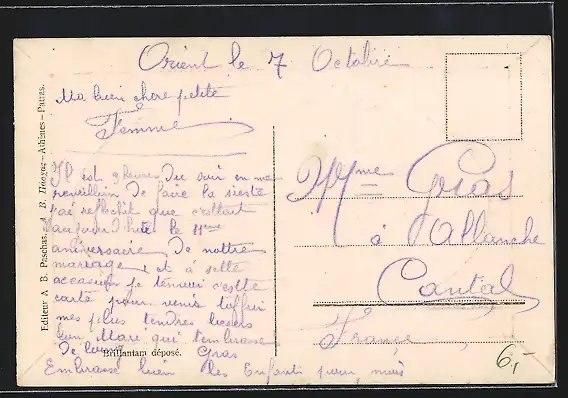 Orient le 7 Octobre
Ma bien chere petite
Femme
Il est 9 heures du soir en me
reveillan de faire la sieste
j'ai reflechit que c'ettait
aujourd'hui le 11eme
aniversaire de nottre
mariage, et à cette
occasion je tenvoi cette
carte pour venir toffrir
mes plus tendres baisers
ton Mari qui t'embrasse
de loing Gras
Embrasse bien les Enfants pour moi
Mme Gras
à Allanche
Cantal
France
Editeur A. B. Paschas, Α. Β. Πάσχας - Athènes - Patras.
Brillantam déposé.
6,-